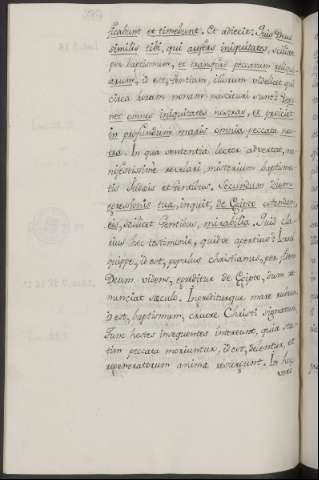 ficabunt et timebunt. Et adiecit: Quis Deus
similis tibi, qui aufers iniquitates, scilicet
per baptismum, et transfers peccatum reliqui-
arum, id est, Gentium, illarum videlicet quæ
circa horam nonam
omnes iniquitates nostras, et proiciet
in profundum maris omnia peccata nos-
tra. In qua sententia lector advertat, ma-
nifestissime revelari mysterium baptisma-
tis Iudæis et Gentibus. Secundum dies
egressionis tuæ, inquit, de Egipto ostendam
eis, scilicet Gentibus, mirabilia. Quid cla-
rius hoc testimonio, quidve apertius? Israel
quippe, id est, populus christianus, per
Deum videns, egreditur de Egipto, dum re-
nunciat sæculo. Ingrediturque mare rubrum,
id est, baptismum, cruore Christi signatum.
Tum hostes insequentes intereunt, quia sta-
tim peccata moriuntur, id est, delentur, et
regeneratorum animæ resurgunt. In hoc